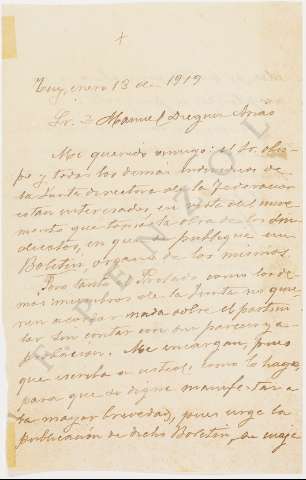 +
Tuy, enero 13 de 1919
Sr. D. Manuel Dieguez Arias
Me querido amigo: el Sr. obis-
po y todos los demas individuos de
la Junta directora de la Federacion
estan interesados, en vista del incre-
mento que toma la obra de los Sin-
dicatos, en que se publique un
Boletin, organo de los mismos.
Pero tanto el Prelado como los de-
mas miembros de la Junta no quie-
ren acordar nada sobre el particu-
lar sin contar con su parecer y a-
probacion. Me encargan, pues
que escriba a usted, como lo hago,
para que se digne manifestar a
la mayor brevedad, pues urge la
publicación de dicho Boletin, su
PENZOL